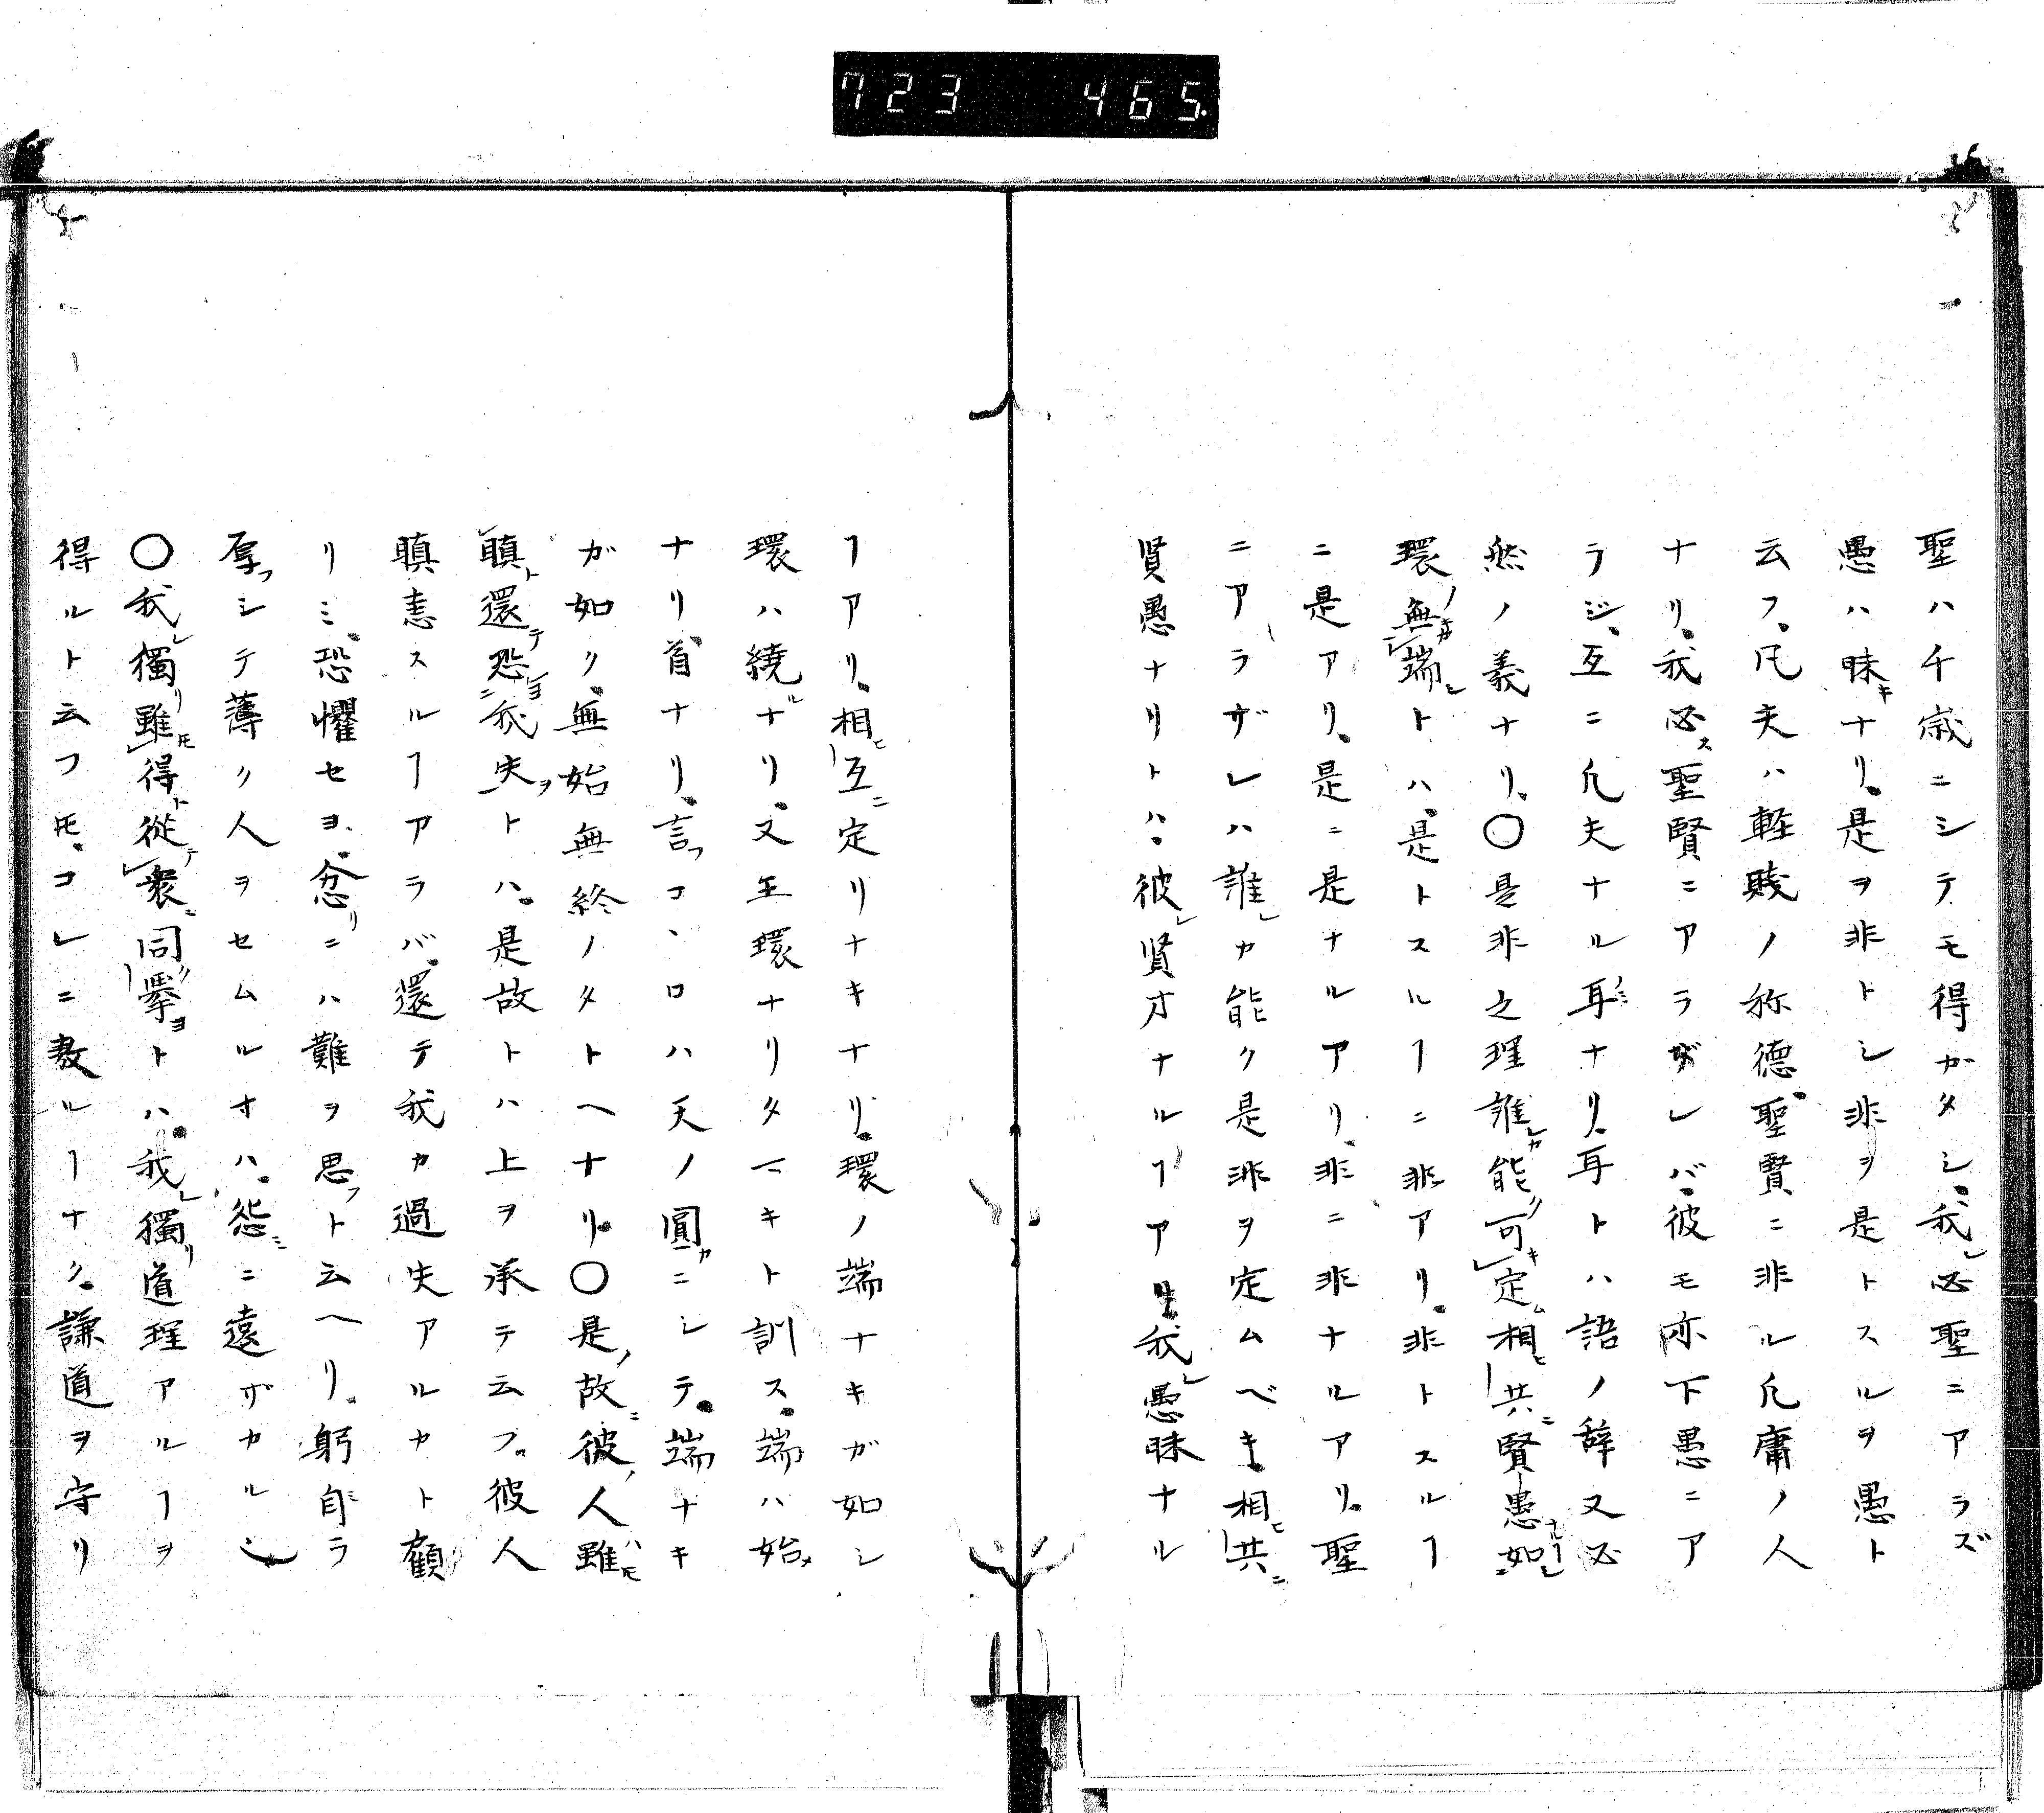 723 465
聖ハ千歳ニシテモ得ガタシ、我レ必聖ニアラズ
愚ハ昧キナリ、是ヲ非トシ非ヲ是トスルヲ愚ト
云フ、凡夫ハ軽賤ノ称徳聖賢ニ非ル凡庸ノ人
ナリ、我必ス聖賢ニアラザレバ、彼モ亦下愚ニア
ラジ、互ニ凡夫ナル耳ノミナリ、耳トハ語ノ辞又必
然ノ義ナリ、〇是非之理誰レカ能ク可キ定ム相ヒ共ニ賢愚ナルヿ如シ
環ノ無キカ端シトハ、是トスルヿニ非アリ、非トスルヿ
ニ是アリ、是ニ是ナルアリ、非ニ非ナルアリ、聖
ニアラザレハ誰レカ能ク是非ヲ定ムベキ、相ヒ共ニ
賢愚ナリトハ、彼レ賢才ナルヿアリ我レ愚昧ナル
ヿアリ、相ヒ互ニ定リナキナリ、環ノ端ナキガ如シ
環ハ繞ルナリ、又玉環ナリタマキト訓ス、端ハ始メ
ナリ首ナリ、言フコヽロハ天ノ圓カニシテ、端ナキ
ガ如ク、無始無終ノタトヘナリ、〇是ノ故ニ彼ノ人雖ハ𪜈
瞋ト還テ恐ヨ我失ヲトハ、是故トハ上ヲ承テ云フ、彼人
瞋恚スルヿアラバ、還テ我カ過失アルカト顧
リミ、恐懼セヨ、忿リニハ難ヲ思フト云ヘリ、躬自ミラ
厚フシテ薄ク人ヲセムルオハ、怨ミニ遠ザカルシ
〇我レ獨リ雖𪜈得ト從テ衆ニ同ク擧ヨトハ、我レ獨リ道理アルヿヲ
得ルト云フ𪜈、コレニ敖ルヿナク、謙道ヲ守リ